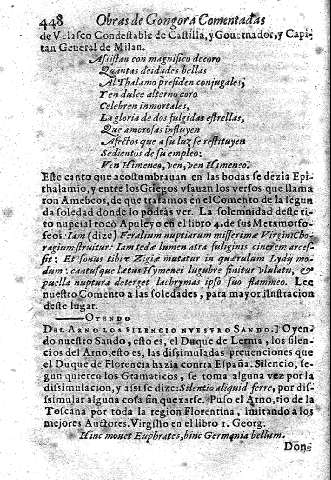 448 Obras de Gongora Comentadas
de Velasco Condestable de Castilla, y Gouernador, y Capi-
tan General de Milan.
Assistan con magnifico decoro
Quantas deidades bellas
Al Thalamo presiden conjugales,
Y en dulce alterno coro
Celebren inmortales,
La gloria de dos fulgidas estrellas,
Que amorosas influyen
Afectos que a su luz se restituyen
Sedientos de su empleo;
Ven Himeneo, ven, ven Himeneo.
Este canto que acostumbrauan en las bodas se dezia Epi-
thalamio, y entre los Griegos vsauan los versos que llama
ron Amebeos, de que tratamos en el Comento de la segun
da soledad donde lo podras ver. La solemnidad deste ri-
to nupcial tocò Apuleyo en el libro 4. de sus Metamorfo-
seos: Iam (dize) Feralium nuptiarum miserrimæ Virgini Cho-
ragium struitur: Iam tedæ lumen atra fuliginis cinere arces-
sit: Et sonus tibiæ Zigiæ mutatur in querulum Lydÿ mo-
dum: cantusque lætus Hymenei lugubre finitur vlulatu, &
puella nuptura deterget lachrymas ipso suo flammeo. Lee
nuestro Comento a las soledades, para mayor illustracion
deste lugar.
OYENDO
DEL ARNO LOS SILENCIO NVESTRO SANDO.] Oyen-
do nuestro Sando, esto es, el Duque de Lerma, los silen-
cios del Arno, esto es, las dissimuladas preuenciones que
el Duque de Florencia hazia contra España. Silencio, se-
gun quieren los Gramaticos, se toma alguna vez por la
dissimulacion, y assi se dize: Silentio aliquid ferre, por dis-
simular alguna cosa sin quexarse. Puso el Arno, rio de la
Toscana por toda la region Florentina, imitando a los
mejores Auctores. Virgilio en el libro 1. Georg.
Hinc mouet Euphrates, hinc Germania bellum.
Don-